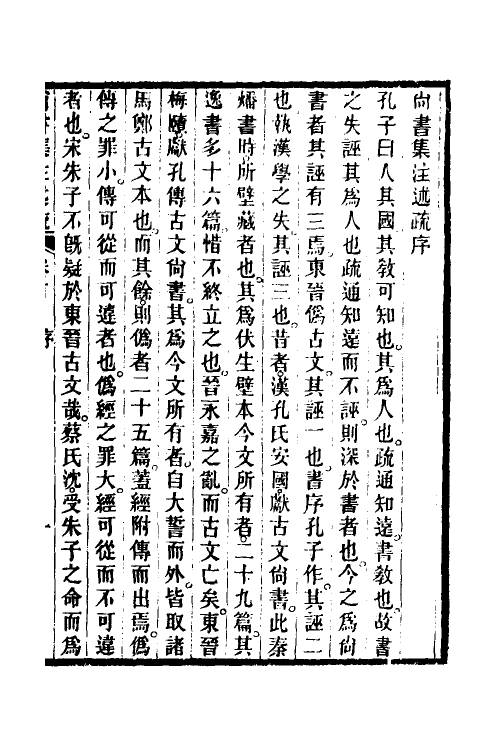 尙書集注述疏序
孔子曰人其國其敎可知也。其爲人也。疏通知遠。書敎也。故書
之失誣其爲人也疏通知遠而不誣。則深於書者也。今之爲尙
書者其誣有三焉。東晉僞古文。其誣一也。書序孔子作。其誣二
也。執漢學之失。其誣三也。昔者。漢孔氏安國獻古文尙書。此秦
燔書時所壁藏者也。其爲伏生壁本今文所有者。二十九篇。其
逸書多十六篇。惜不終立之也。晉永嘉之亂。而古文亡矣。東晉
梅賾獻孔傳古文尙書。其爲今文所有者。自大誓而外。皆取諸
馬鄭古文本也。而其餘。則僞者二十五篇。蓋經附傳而出焉。僞
傳之罪小。傳可從而可違者也。僞經之罪大。經可從而不可違
者也。宋朱子不旣疑於東晉古文哉。蔡氏沈。受朱子之命而爲
序 一